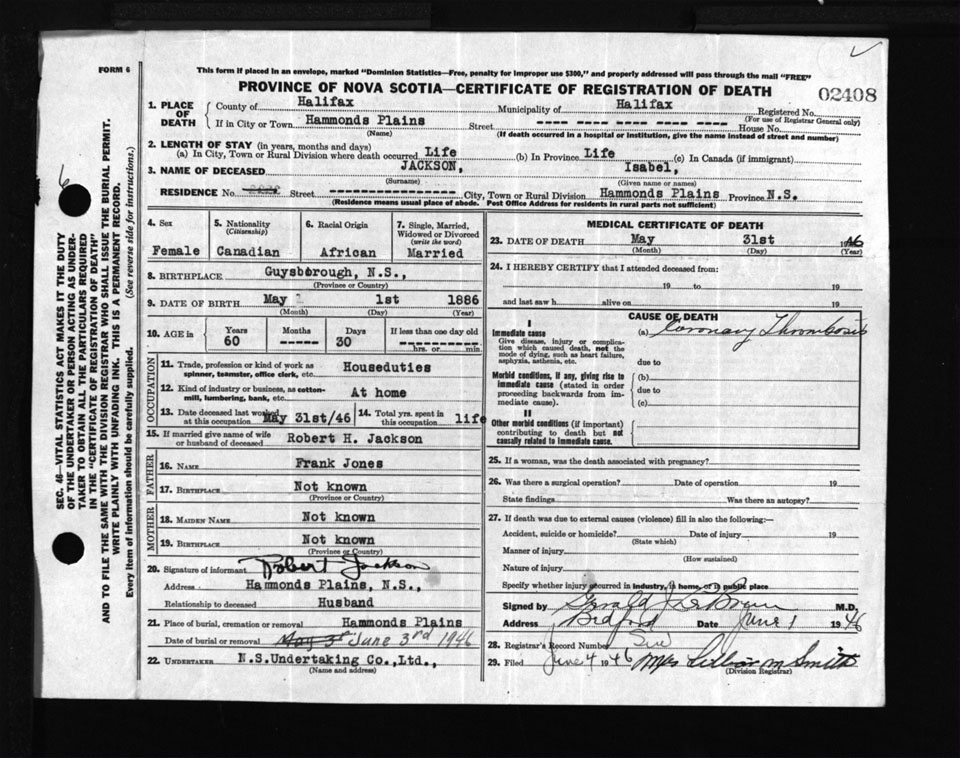 FORM 6
This form if placed in an envelope, marked "Dominion Statistics—Free, penalty for improper use $300," and properly addressed will pass through the mail "FREE"
PROVINCE OF NOVA SCOTIA—CERTIFICATE OF REGISTRATION OF DEATH
02408
1. PLACE OF DEATH
County of Halifax Municipality of Halifax Registered No.
(For use of Registrar General only)
If in City or Town Hammonds Plains Street ---- ---- ---- ---- ---- House No.
(Name) (If death occurred in a hospital or institution, give the name instead of street and number)
2. LENGTH OF STAY (in years, months and days)
(a) In City, Town or Rural Division where death occurred Life (b) In Province Life (c) In Canada (if immigrant)
3. NAME OF DECEASED JACKSON, Isabel,
(Surname) (Given name or names)
RESIDENCE No. ---- Street ---------------- City, Town or Rural Division Hammonds Plains Province N.S.
(Residence means usual place of abode. Post Office Address for residents in rural parts not sufficient)
4. Sex
Female
5. Nationality
(Citizenship)
Canadian
6. Racial Origin
African
7. Single, Married, Widowed or Divorced
(write the word)
Married
8. BIRTHPLACE Guysborough, N.S.,
(Province or Country)
9. DATE OF BIRTH May 1st 1886
(Month) (Day) (Year)
10. AGE in
Years Months Days If less than one day old
60 ----- 30 hrs. or min.
OCCUPATION
11. Trade, profession or kind of work as spinner, teamster, office clerk, etc. Houseduties
12. Kind of industry or business, as cotton-mill, lumbering, bank, etc. At home
13. Date deceased last worked at this occupation May 31st/46
14. Total yrs. spent in this occupation life
15. If married give name of wife or husband of deceased Robert H. Jackson
FATHER
16. NAME Frank Jones
17. BIRTHPLACE Not known
(Province or Country)
MOTHER
18. MAIDEN NAME Not known
19. BIRTHPLACE Not known
(Province or Country)
20. Signature of informant Robert Jackson
Address Hammonds Plains, N.S.,
Relationship to deceased Husband
21. Place of burial, cremation or removal Hammonds Plains
Date of burial or removal June 3rd 1946
22. UNDERTAKER N.S.Undertaking Co.,Ltd.,
(Name and address)
MEDICAL CERTIFICATE OF DEATH
23. DATE OF DEATH May 31st 1946
(Month) (Day) (Year)
24. I HEREBY CERTIFY that I attended deceased from:
19 to 19
and last saw h alive on 19
CAUSE OF DEATH
I
Immediate cause
Give disease, injury or complication which caused death, not the mode of dying, such as heart failure, asphyxia, asthenia, etc.
(a) Coronary Thrombosis
due to
Morbid conditions, if any, giving rise to immediate cause (stated in order proceeding backwards from immediate cause).
(b)
due to
(c)
II
Other morbid conditions (if important) contributing to death but not causally related to immediate cause.
25. If a woman, was the death associated with pregnancy?
26. Was there a surgical operation? Date of operation 19
State findings Was there an autopsy?
27. If death was due to external causes (violence) fill in also the following:—
Accident, suicide or homicide? Date of injury 19
(State which)
Manner of injury
(How sustained)
Nature of injury
Specify whether injury occurred in industry, in home, or in public place
Signed by Gerald J. LeBrun M.D.
Address Bedford Date June 1 1946
28. Registrar's Record Number Six
29. Filed June 4 1946 Mrs Lillian M Smith
(Division Registrar)
SEC. 46—VITAL STATISTICS ACT MAKES IT THE DUTY
OF THE UNDERTAKER OR PERSON ACTING AS UNDER-
TAKER TO OBTAIN ALL THE PARTICULARS REQUIRED
IN THE "CERTIFICATE OF REGISTRATION OF DEATH"
AND TO FILE THE SAME WITH THE DIVISION REGISTRAR WHO SHALL ISSUE THE BURIAL PERMIT.
WRITE PLAINLY WITH UNFADING INK. THIS IS A PERMANENT RECORD.
Every item of information should be carefully supplied. (See reverse side for instructions.)
6